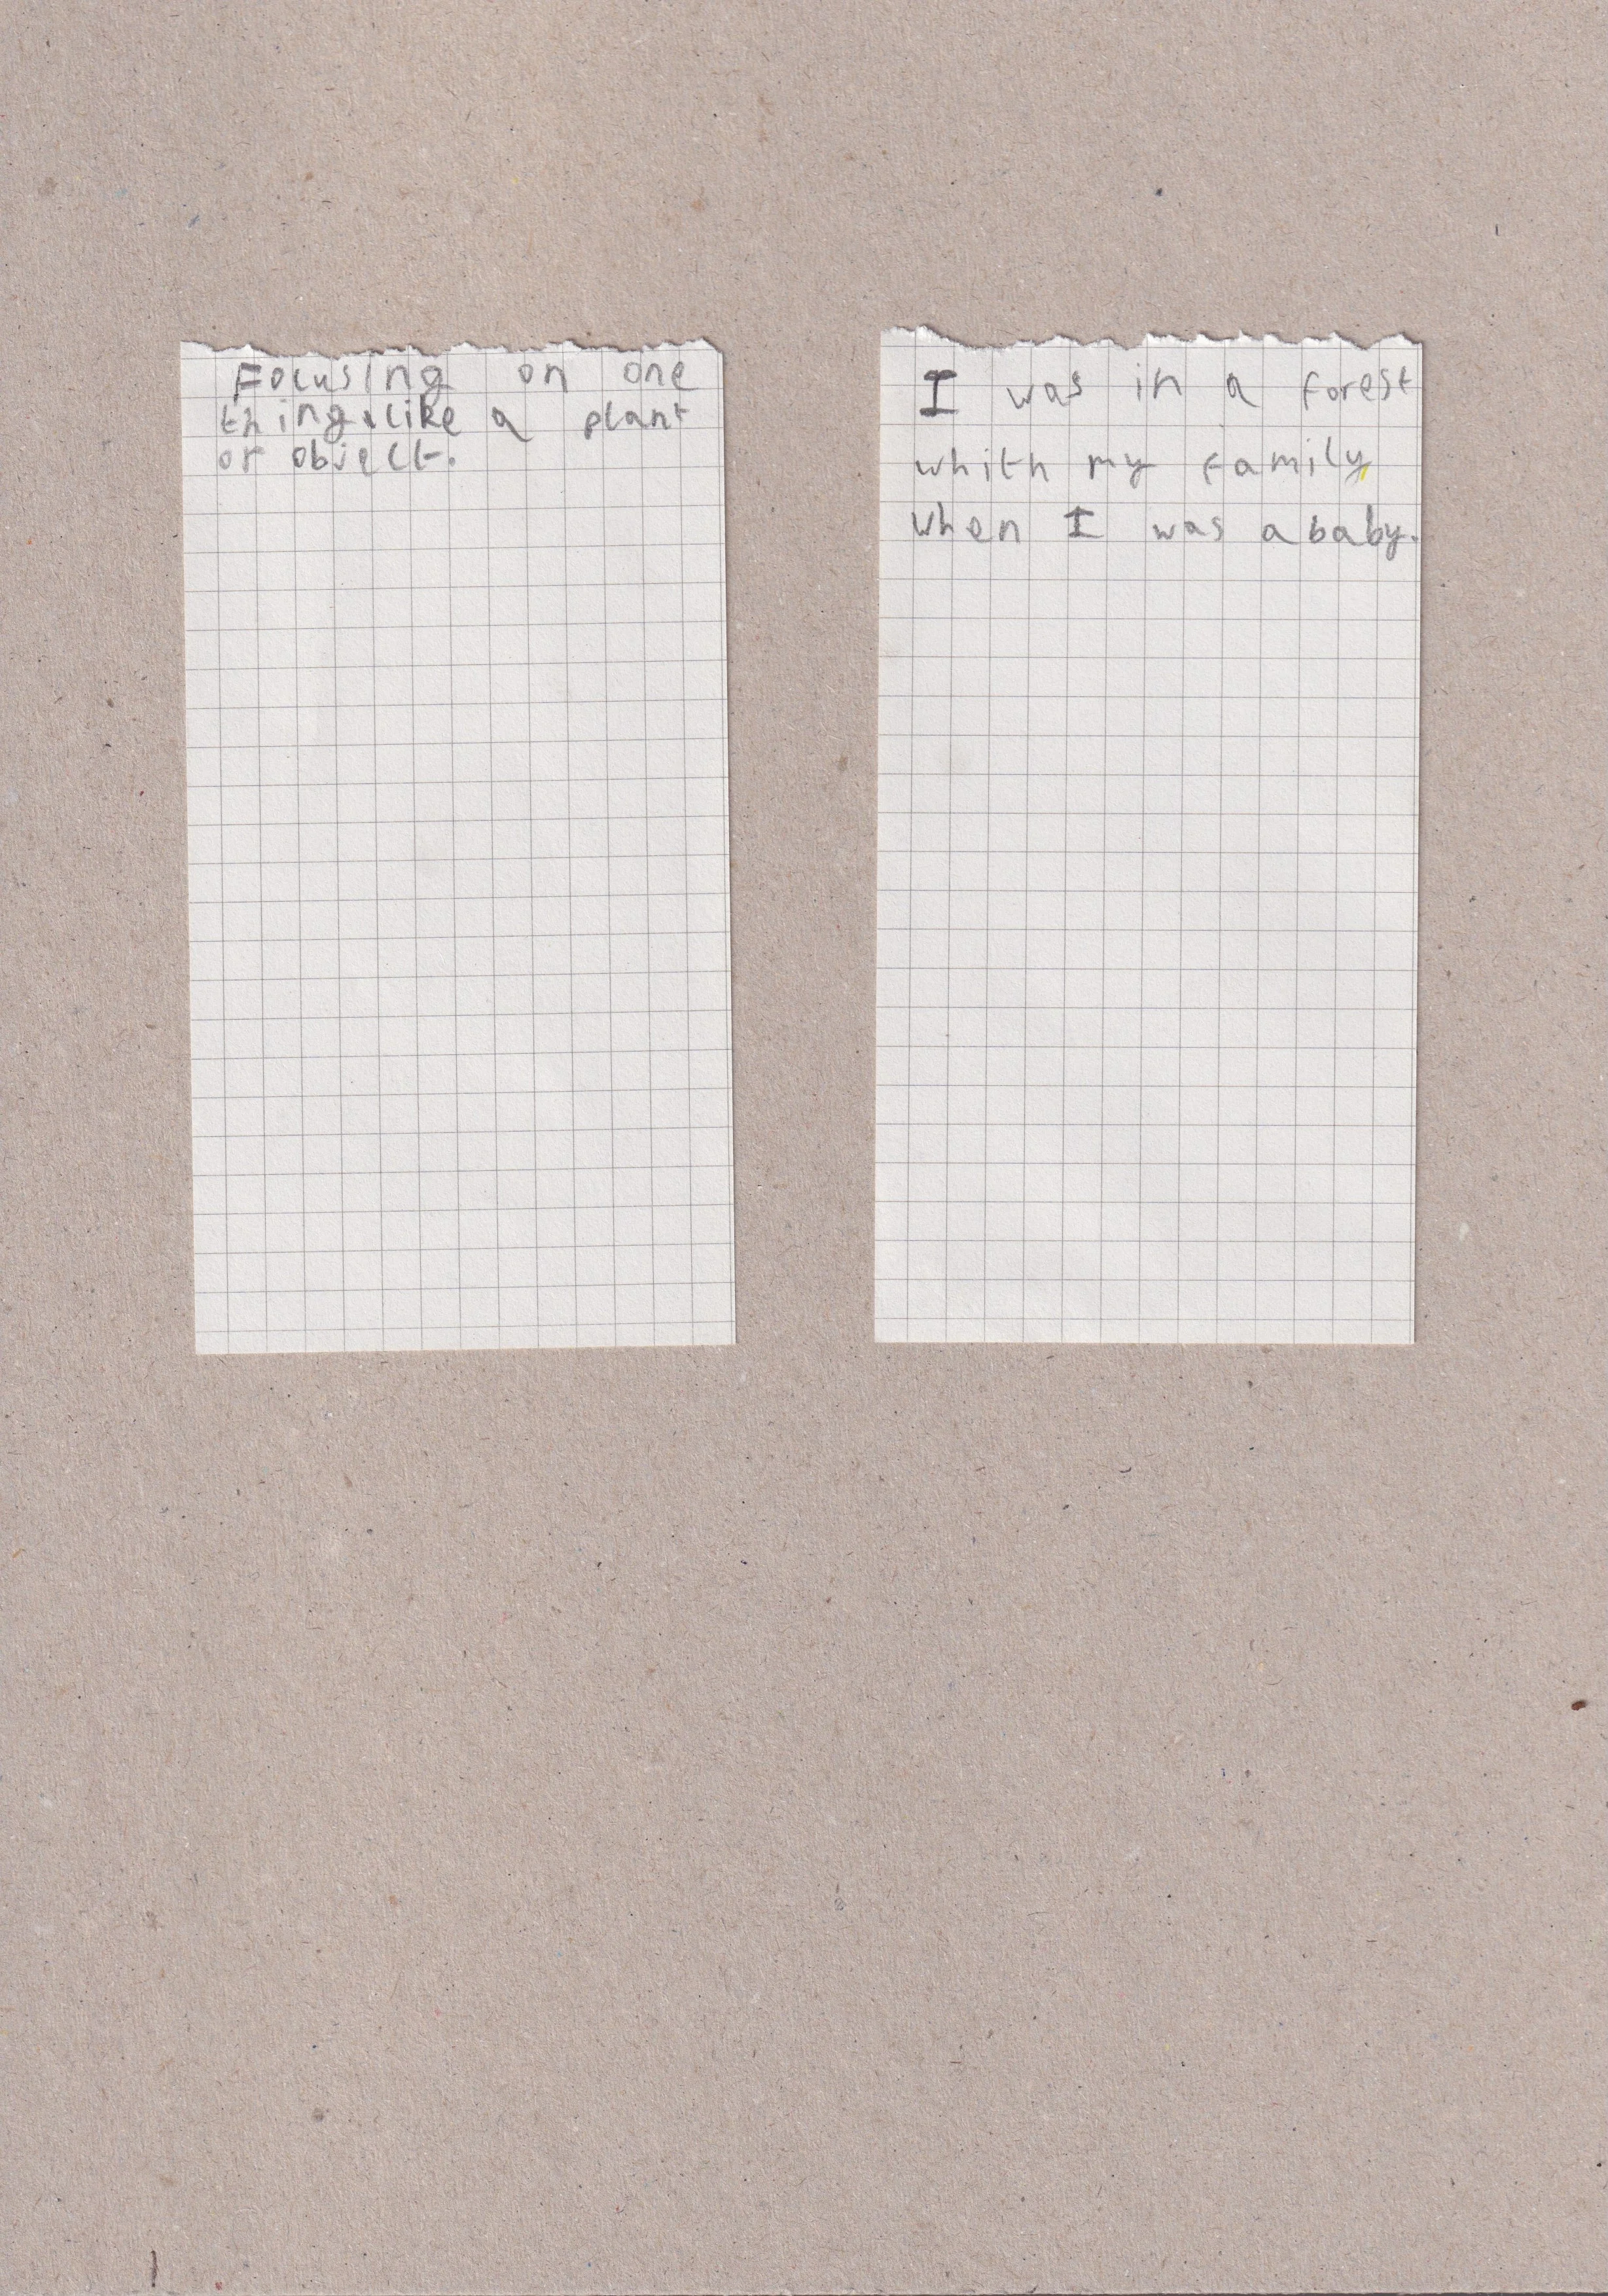 Focusing on one
thing, like a plant
or object.
I was in a forest
whith my family
when I was a baby.